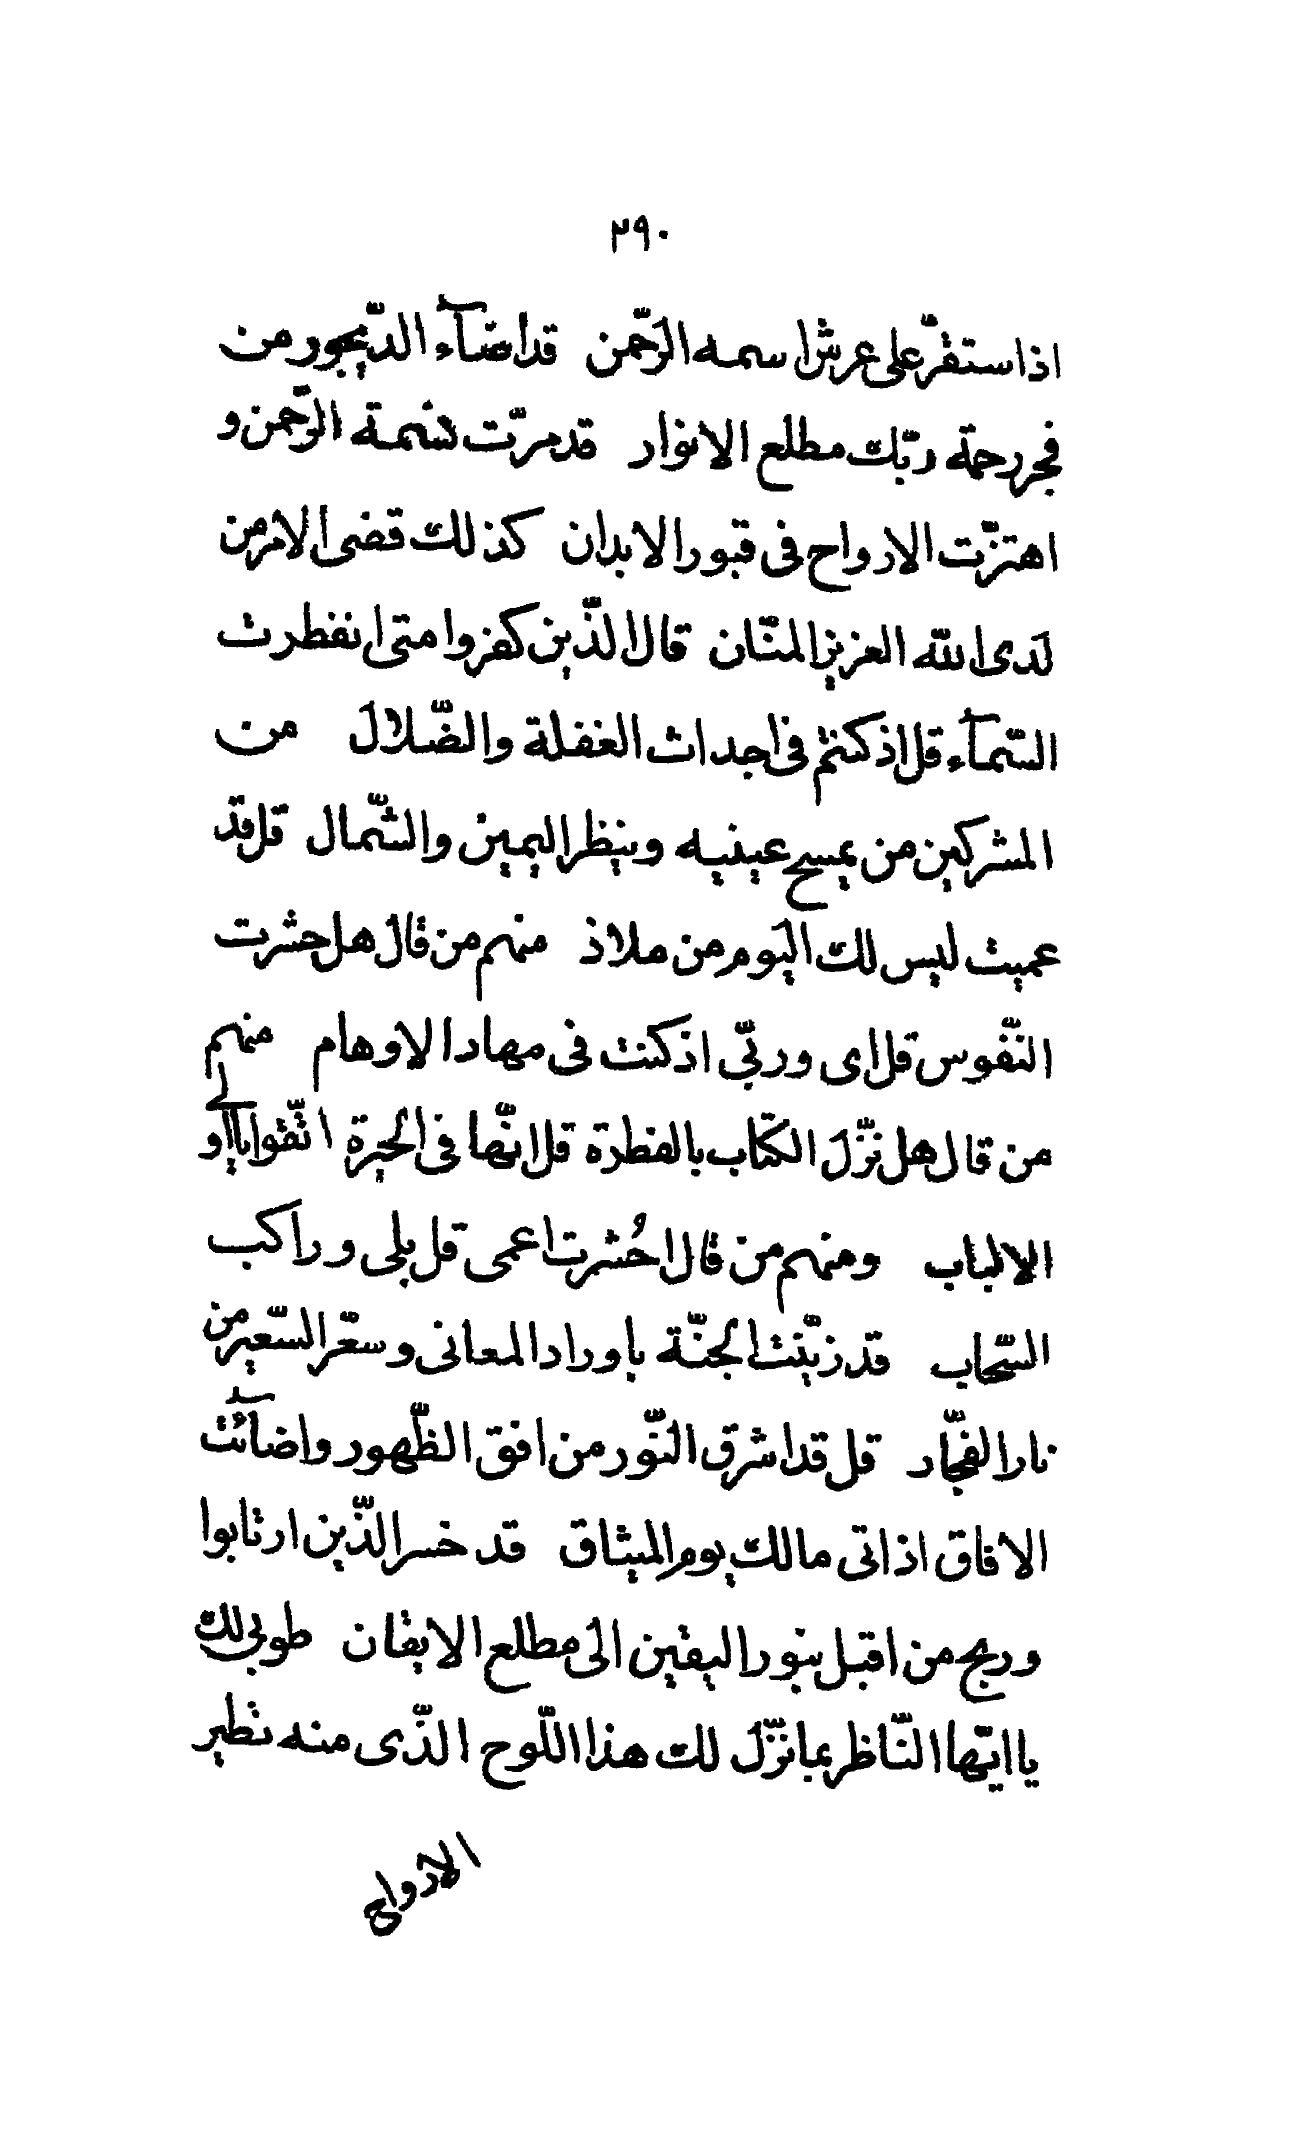 ٢٩٠
اذا ستقرّ على عرش اسمه الرّحمن قد اضآء الدّيجور من
فجر رحمة ربّك مطلع الانوار قد مرّت نسمة الرّحمن و
اهتزّت الارواح فى قبور الابدان كذلك قضى الامر من
لدى الله العزيز المنّان قال الذّين كفروا متى انفطرت
السّمآء قل اذ كنتم فى اجداث الغفلة والضّلال من
المشركين من يمسح عينيه وينظر اليمين والشّمال قل قد
عميت ليس لك اليوم من ملاذ منهم من قال هل حشرت
النّفوس قل اى وربّى اذ كنت فى مهاد الاوهام منهم
من قال هل نزّل الكتاب بالفطرة قل انّها فى الحيرة اتّقوا يا اولى
الالباب ومنهم من قال احُشرت اعمى قل بلى وراكب
السّحاب قد زيّنت الجنّة باوراد المعانى وسعّر السّعير من
نار الفجّار قل قد اشرق النّور من افق الظّهور واضآئت
الافاق اذ اتى مالك يوم الميثاق قد خسر الذّين ارتابوا
وربح من اقبل بنور اليقين الى مطلع الايقان طوبى لك
يا ايّها النّاظر بما نزّل لك هذا اللّوح الذّى منه تطير
الارواح